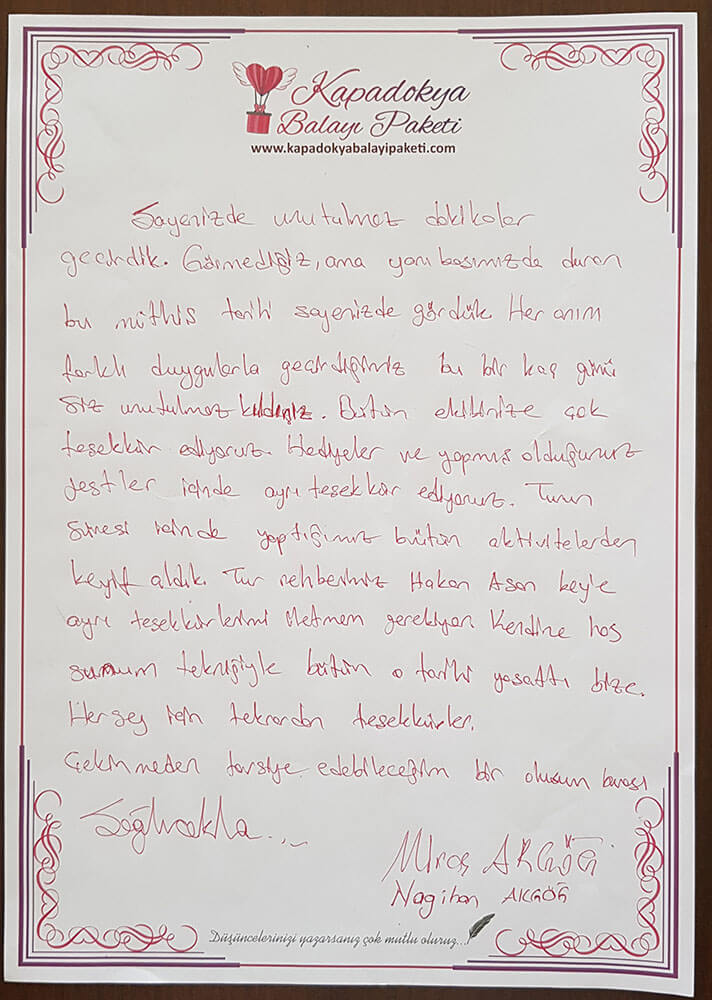 Kapadokya
Balayı Paketi
www.kapadokyabalayipaketi.com
Sayenizde unutulmaz dakikalar
geçirdik. Görmediğiz, ama yanıbaşımızda duran
bu müthiş tarihi sayenizde gördük Her anım
farklı duygularla geçirdiğimiz bu bir kaç günü
siz unutulmaz kıldınız. Bütün ekibinize çok
teşekkür ediyoruz. Hediyeler ve yapmış olduğunuz
jestler içinde ayrı teşekkür ediyoruz. Turun
süresi içinde yaptığımız bütün aktivitelerden
keyif aldık. Tur rehberimiz Hakan
ayrı teşekkürlerimi iletmem gerekiyor. Kendine hoş
sunum tekniğiyle bütün o tarihi yaşattı bize.
Herşey için tekrardan teşekkürler.
Çekinmeden tavsiye edebileceğim bir oluşum burası
Sağlıcakla...
Miraç AKGÖĞ
Nagihan AKGÖĞ
Düşüncelerinizi yazarsanız çok mutlu oluruz...